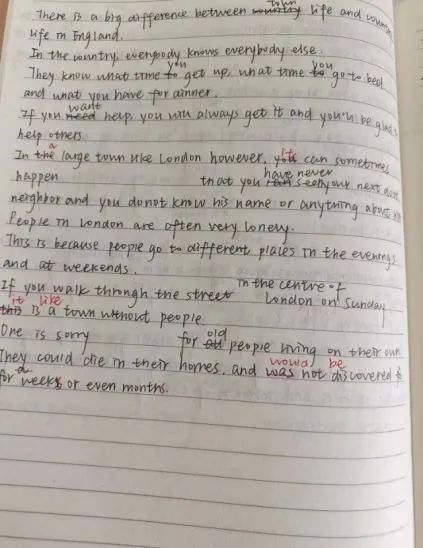 There is a big difference between country town life and country
life in England.
In the country, everybody knows everybody else.
They know what time to you get up, what time to you go to bed
and what you have for dinner.
If you need want help, you will always get it and you'll be glad to
help others.
In the a large town like London however, you it can sometimes
happen that you have never seen your next door
neighbor and you donot know his name or anything about
People in London are often very lonely.
This is because people go to different places in the evenings
and at weekends.
If you walk through the street in the centre of London on Sunday
this it is like a town without people
One is sorry for old people living on their own.
They could die in their homes, and was would not be discovered
for weeks or even months.